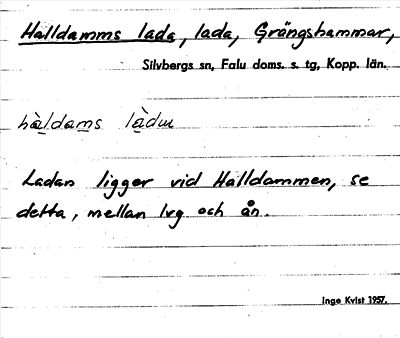 Halldamms lada, lada, Grängshammar,
Silvbergs sn, Falu doms. s. tg, Kopp. län.
Ladan ligger vid Halldammen, se
detta, mellan lvg och ån.
Inge Kvist 1957.